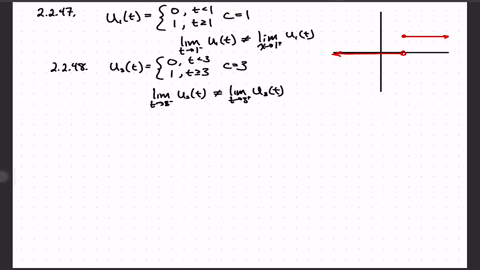 2.2.47. u₁(t) = { 0, t<1
1, t≥1 c=1
lim t→1⁻ u₁(t) ≠ lim x→1⁺ u₁(t)
2.2.48. u₃(t) = { 0, t<3
1, t≥3 c=3
lim t→3⁻ u₃(t) ≠ lim t→3⁺ u₃(t)